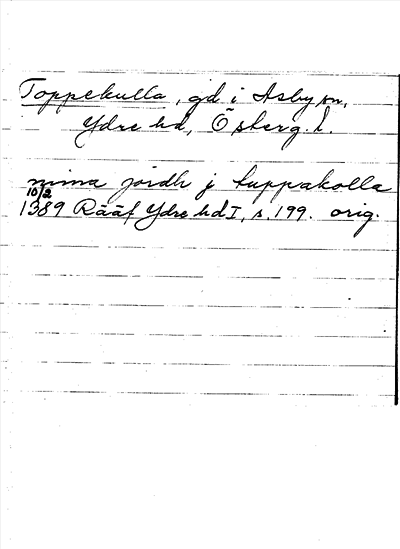 Toppekulla, gd i Asby sn,
Ydre hd, Östergl.
mina jordh j tuppakolla
10/2
1389 Rääf Ydre hd I, s. 199. orig.